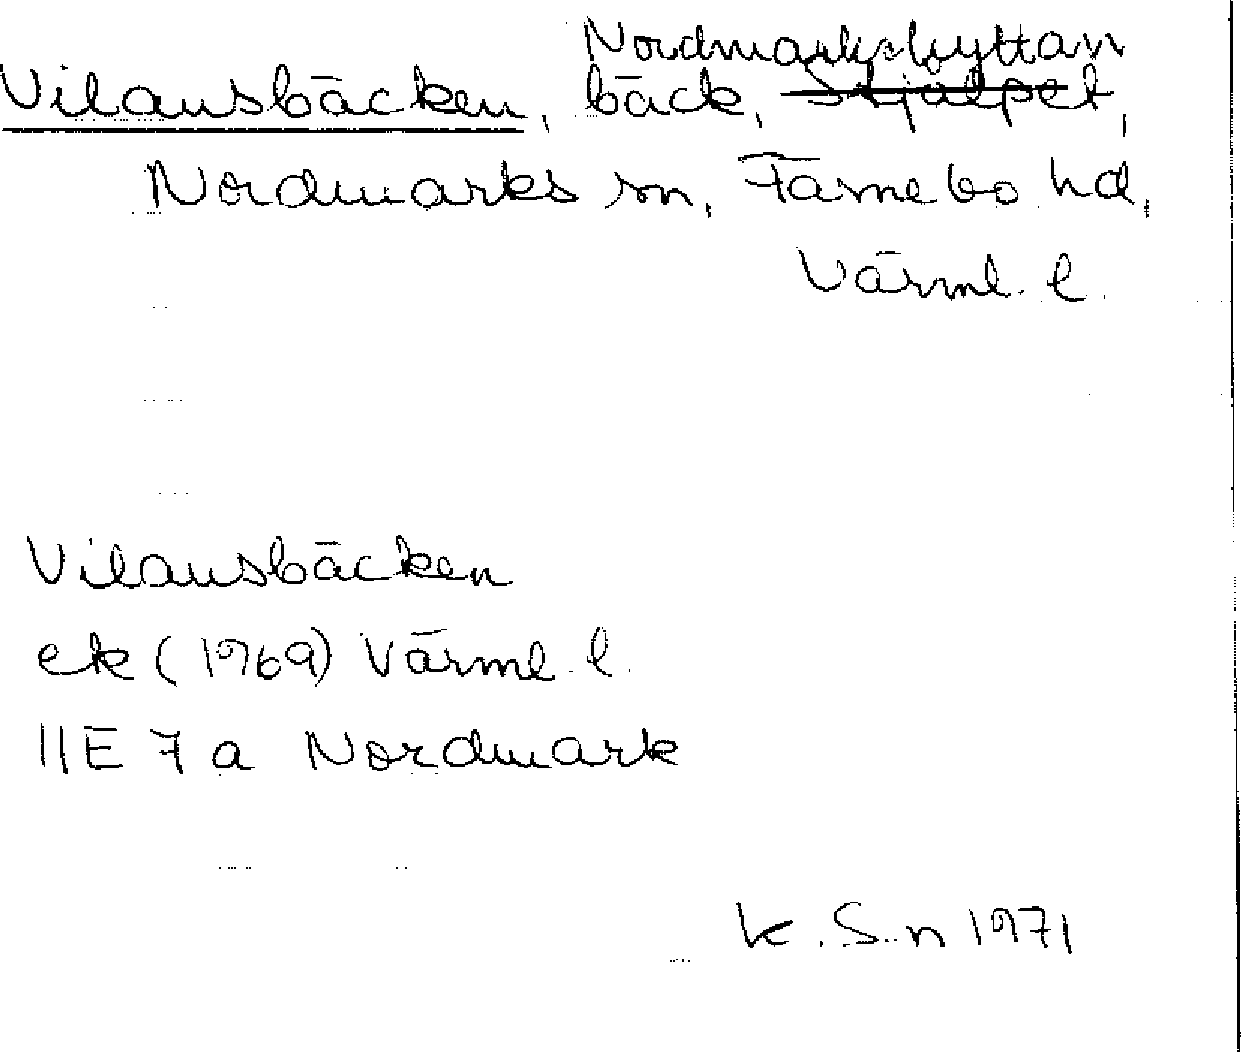 Nordmarkshyttan
Vilansbäcken, bäck, Stjälpet,
Nordmarks sn, Färnebo hd,
Värml. l.
Vilansbäcken
ek (1969) Värml. l.
11E 7 a Nordmark
K. S-n 1971